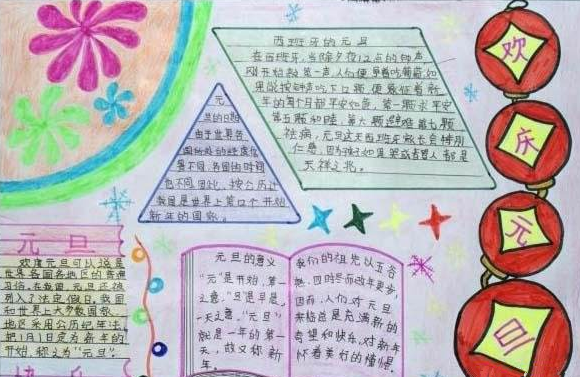 西班牙的元旦
在西班牙，当除夕夜12点的钟声
刚开始敲第一声，人们便
果能按钟声吃下12颗，便象征着新
年的每个月都平安如意，第一颗求平安
第五颗和睦，第六颗避难，第七颗
祛病，元旦这天西班牙家长会特别
仁慈，因为孩子如果
天祥之兆。
元
旦的日期
由于世界各
国所处的经度位
置不同，各国的时间
也不同，因此，按公历计
我国是世界上第12个开始
新年的国家。
元旦
欢度元旦可以说是
世界各国各地区的普遍
习俗，在我国，元旦还被
列入了法定假日，我国
和世界上大多数国家、
地区采用公历纪年法，
把1月1日定为新年的
开始，称之为“元旦”。
快乐
元旦的意义
“元”是开始，第一
之意，“旦”是早晨，
一天之意，“元旦”
就是一年的第一
天，故又称新
年。
我们的祖先以五谷
四时
因而，人们对元旦
来临总是充满新的
希望和快乐，对新年
怀着美好的憧憬。
欢
庆
元
旦